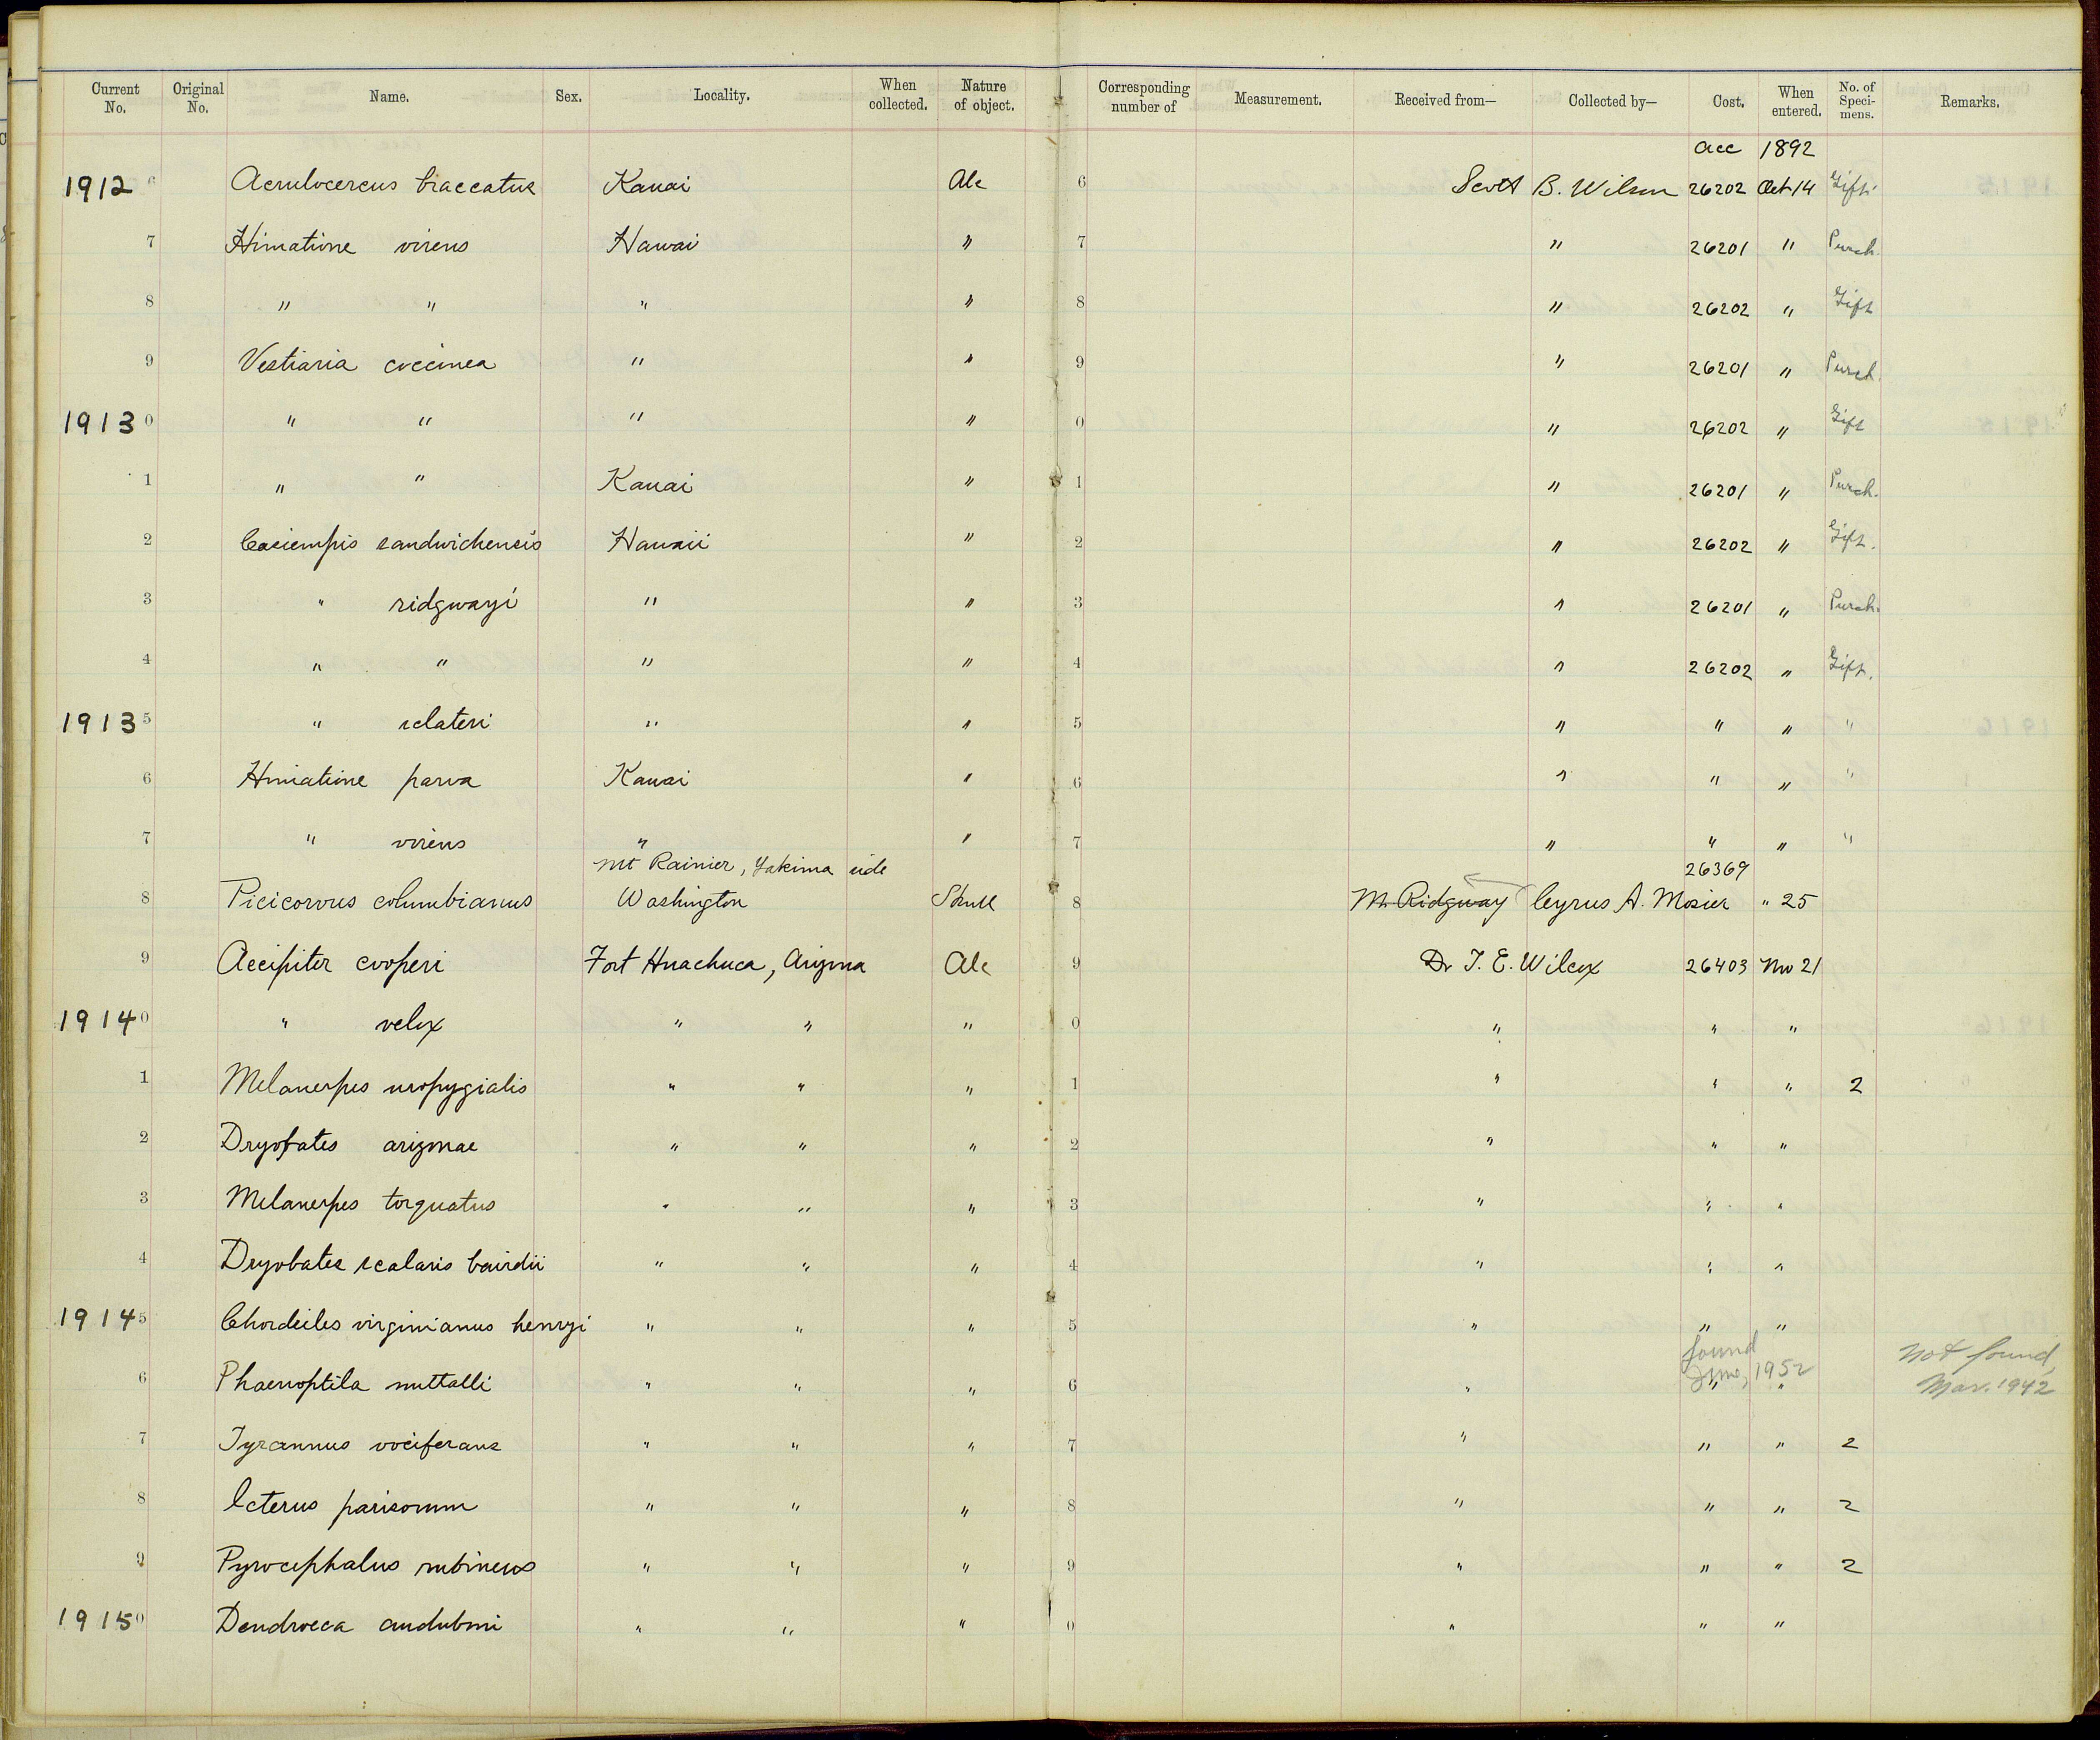 Current No. Original No. Name. Sex. Locality. When collected. Nature of object. Corresponding number of Measurement. Received from— Collected by— Cost. When entered. No. of Speci-mens. Remarks.
acc 1892
1912 6 Acrulocercus braccatus Kauai Alc 6 Scott B. Wilson 26202 Oct 14 Gift
7 Himatione virens Hawai " 7 " 26201 " Purch.
8 " " " " 8 " 26202 " Gift
9 Vestiaria coccinea " " 9 " 26201 " Purch.
1913 0 " " " " 0 " 26202 " Gift
1 " " Kauai " 1 " 26201 " Purch.
2 Chasiempis sandwichensis Hawaii " 2 " 26202 " Gift.
3 " ridgwayi " " 3 " 26201 " Purch.
4 " " " " 4 " 26202 " Gift.
1913 5 " sclateri " " 5 " " " "
6 Himatione parva Kauai " 6 " " " "
7 " virens " " 7 " " " "
Mt Rainier, Yakima side 26369
8 Picicorvus columbianus Washington Skull 8 M. Ridgway Cyrus A. Mosier " 25
9 Accipiter cooperi Fort Huachuca, Arizona Alc 9 Dr T. E. Wilcox 26403 Nov 21
1914 0 " velox " " " 0 " " "
1 Melanerpes uropygialis " " " 1 " " " 2
2 Dryobates arizonae " " " 2 " " "
3 Melanerpes torquatus " " " 3 " " "
4 Dryobates scalaris bairdii " " " 4 " " "
1914 5 Chordeiles virginianus henryi " " " 5 " " "
found June, 1952 Not found, Mar. 1942
6 Phaenoptila nuttalli " " " 6 " " "
7 Tyrannus vociferans " " " 7 " " " 2
8 Icterus parisorum " " " 8 " " " 2
9 Pyrocephalus rubineus " " " 9 " " " 2
1915 0 Dendroeca auduboni " " " 0 " " "